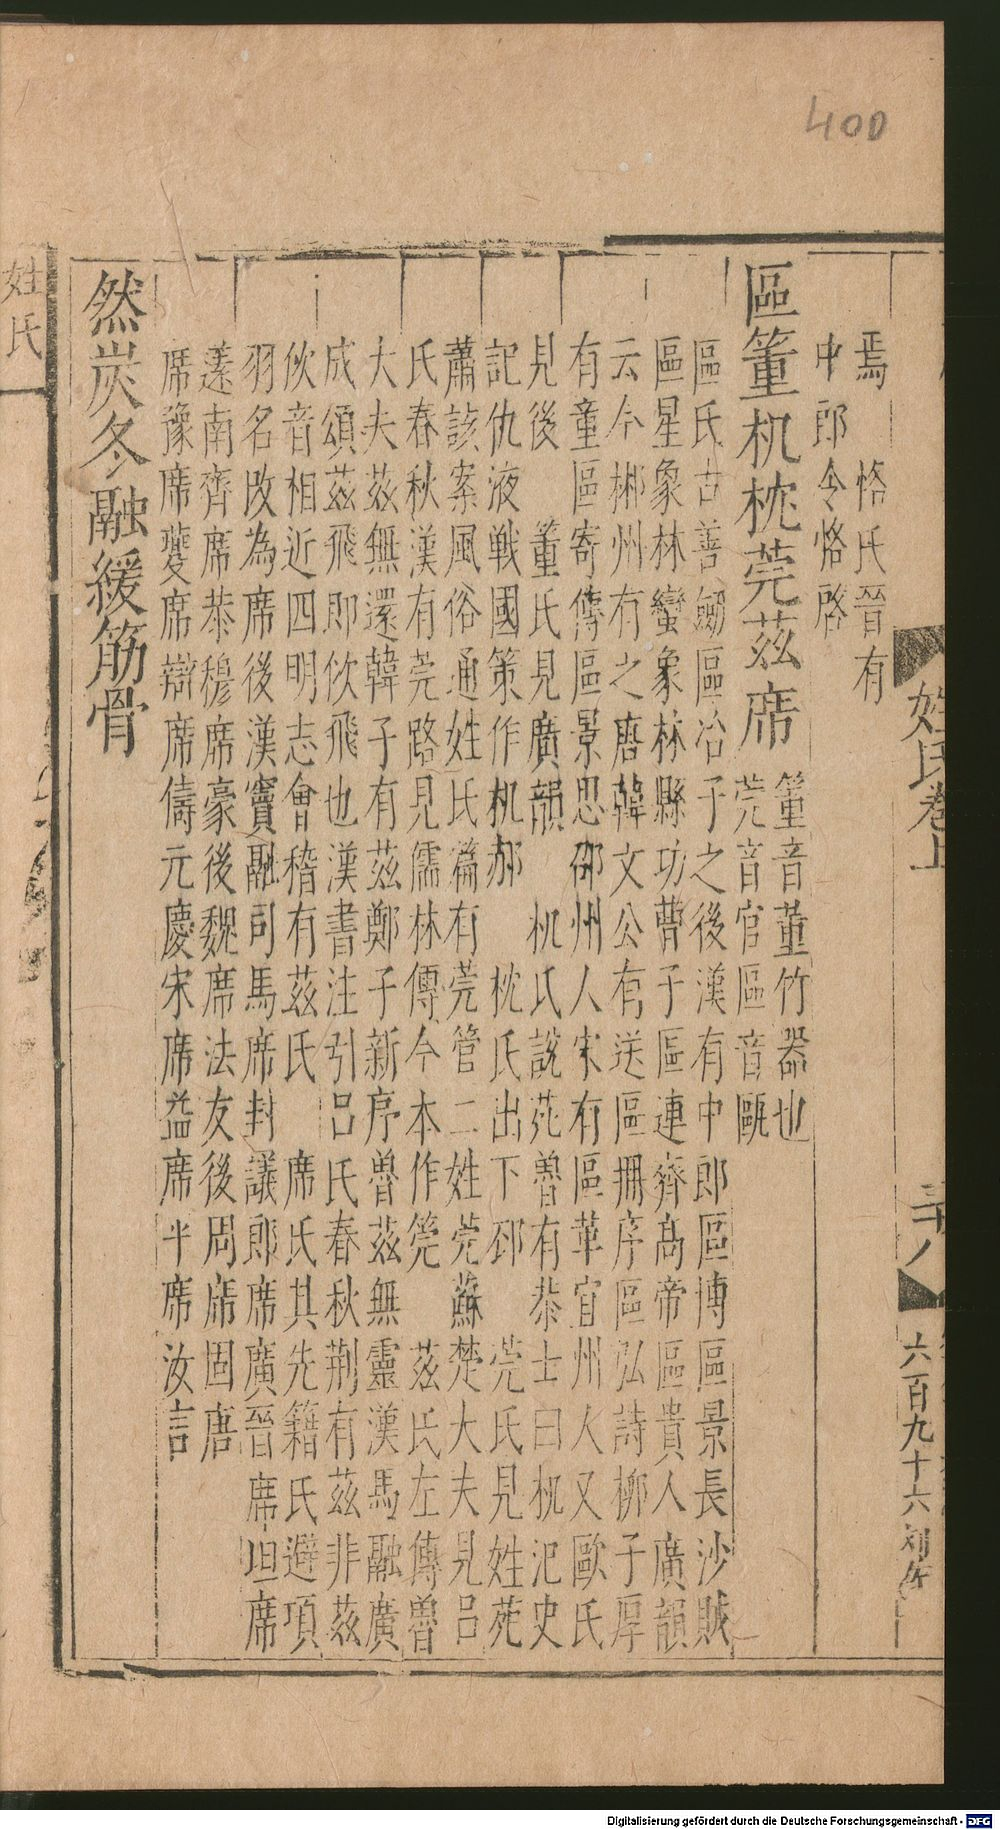 400
姓氏卷上
六百九十六
焉　恪氏晉有
中郎令恪啓
區董机枕莞茲席
董音董竹器也
莞音官區音甌
區氏古善劒區冶子之後漢有中郎區博區景長沙賊
區星象林蠻象林縣功曹子區連齊高帝區貴人廣韻
云今郴州有之唐韓文公有送區冊序區弘詩柳子厚
有童區寄傳區景思邵州人宋有區革宜州人又歐氏
見後　董氏見廣韻　机氏說苑魯有恭士曰机氾史
記仇液戰國策作机郝　枕氏出下邳　莞氏見姓苑
蕭該案風俗通姓氏篇有莞管二姓莞蘇楚大夫見呂
氏春秋漢有莞路見儒林傳今本作筦　茲氏左傳魯
大夫茲無還韓子有茲鄭子新序魯茲無靈漢馬融廣
成頌茲飛即佽飛也漢書注引呂氏春秋荆有茲非茲
佽音相近四明志會稽有茲氏　席氏其先籍氏避項
羽名改為席後漢竇融司馬席封議郎席廣晉席坦席
遂南齊席恭穆席豪後魏席法友後周席固唐
席豫席夔席辯席儔元慶宋席益席平席汝言
然炭冬融緩筋骨
姓氏
Digitalisierung gefördert durch die Deutsche Forschungsgemeinschaft - DFG